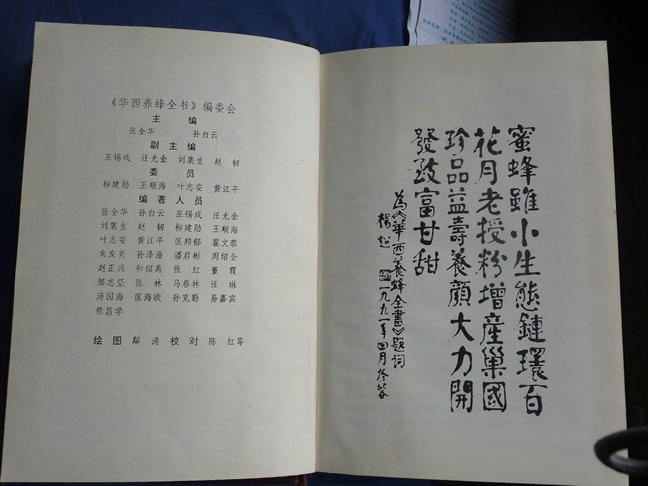 《华西养蜂全书》编委会
主 编
张全华 孙白云
副 主 编
巫锡成 汪允金 刘集生 赵 韧
委 员
柳建勋 王顺海 叶志安 黄江平
编 著 人 员
张全华 孙白云 巫锡成 汪允金
刘集生 赵 韧 柳建勋 王顺海
叶志安 黄江平 匡邦郁 翟文蓉
朱友炎 孙泽淦 潘启彬 周绍全
赵正兴 和绍禹 张 红 董 霞
邹志坚 张 林 马春林 汪 琳
汤国海 匡海欧 孙克勤 易嘉宾
熊昌学
绘 图 鄢 涛 校 对 陈 红等
蜜蜂雖小生態鏈環百
花月老授粉增産巢國
珍品益壽養顏大力開
發致富甘甜
為《華西養蜂全書》題词
楊 一九九一年四月於蓉